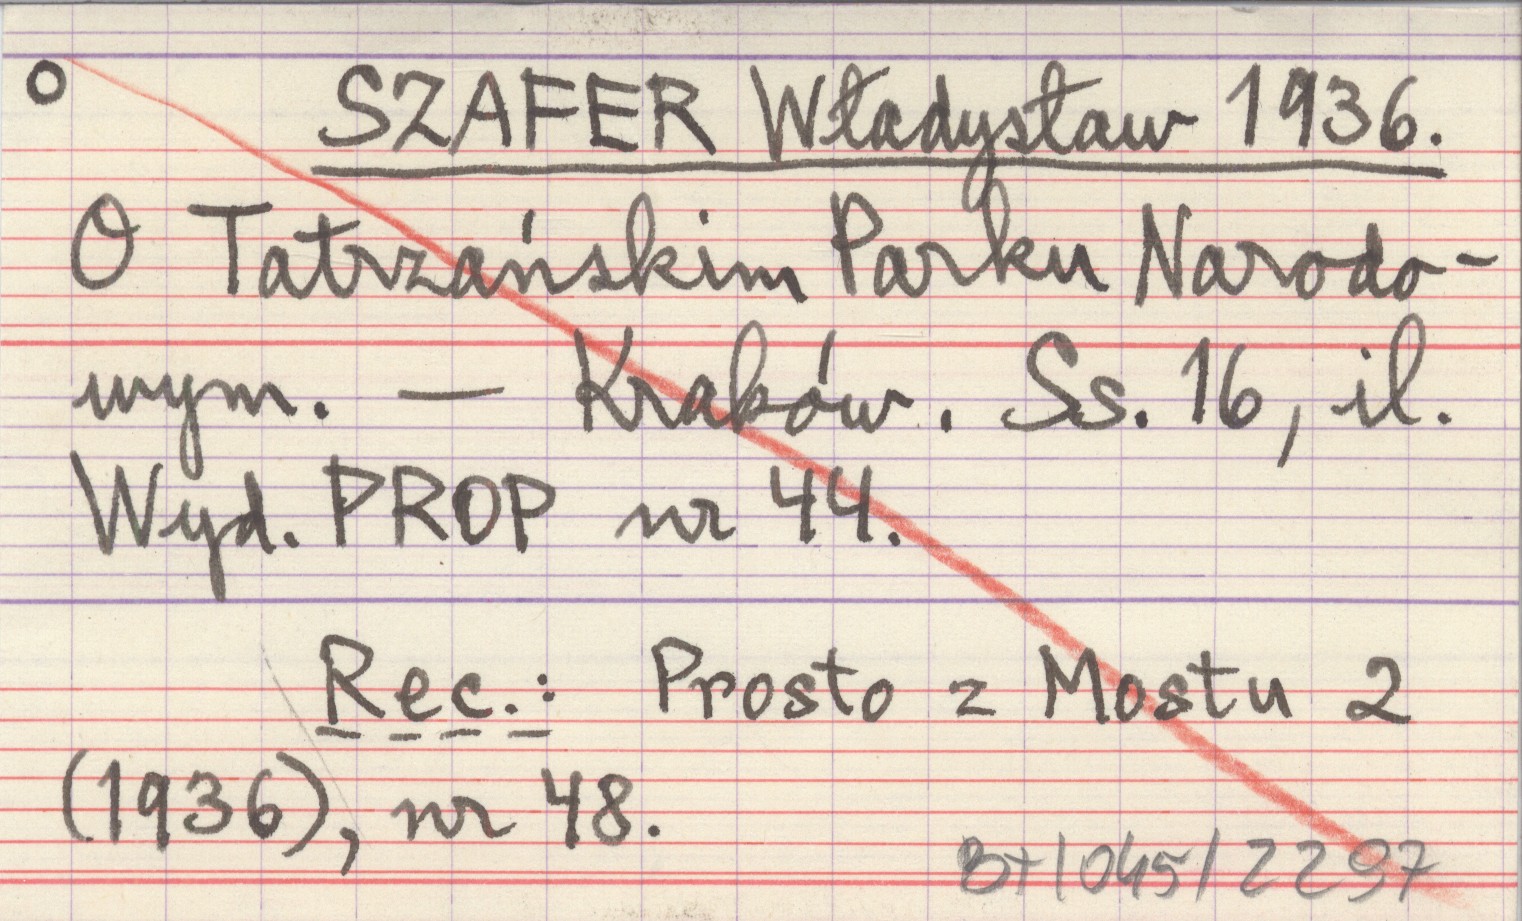 O SZAFER Władysław 1936.
O Tatrzańskim Parku Narodo-
wym. — Kraków. Ss. 16, il.
Wyd. PROP nr 44.
Rec.: Prosto z Mostu 2
(1936), nr 48.
BT/045/2297